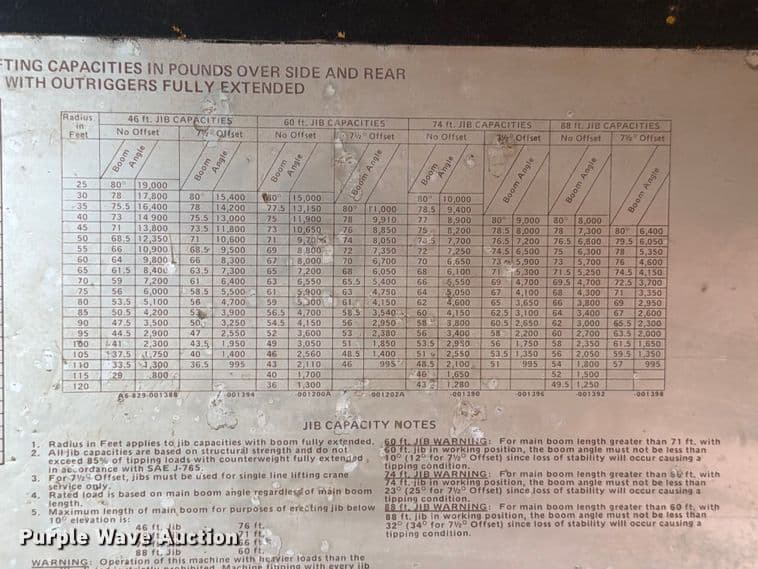 FTING CAPACITIES IN POUNDS OVER SIDE AND REAR
WITH OUTRIGGERS FULLY EXTENDED
Radius in Feet 46 ft. JIB CAPACITIES 60 ft. JIB CAPACITIES 74 ft. JIB CAPACITIES 88 ft. JIB CAPACITIES
No Offset 7½° Offset No Offset 7½° Offset No Offset 7½° Offset No Offset 7½° Offset
Boom Angle Boom Angle Boom Angle Boom Angle Boom Angle Boom Angle Boom Angle Boom Angle
25 80° 19,000
30 78 17,800 80° 15,400 80° 15,000 80° 10,000
35 75.5 16,400 78 14,200 77.5 13,150 80° 11,000 78.5 9,400
40 73 14 900 75.5 13,000 75 11,900 78 9,910 77 8,900 80° 9,000 80° 8,000
45 71 13,800 73.5 11,800 73 10,650 76 8,850 75 8,200 78.5 8,000 78 7,300 80° 6,400
50 68.5 12,350 71 10,600 71 9,700 74 8,050 7,700 76.5 7,200 76.5 6,800 79.5 6,050
55 66 10,900 68.5 9,500 69 8 800 72 7,350 72 7,250 74.5 6,500 75 6,300 78 5,350
60 64 9,800 66 8,300 67 8,000 70 6,700 70 6,650 73 5,900 73 5,700 76 4,600
65 61.5 8,400 63.5 7,300 65 7,200 68 6,050 68 6,100 71 5,300 71.5 5,250 74.5 4,150
70 59 7,200 61 6,400 63 6,550 65.5 5,400 66 5,550 69 4,700 69.5 4,700 72.5 3,700
75 56 6,000 58.5 5,500 61 5,900 63 4,750 64 5,050 67 4,100 68 4,300 71 3,350
80 53.5 5,100 56 4,700 59 5,300 61 4,150 62 4,600 65 3,650 66 3,800 69 2,950
85 50.5 4,200 53 3,900 56.5 4,700 58.5 3,540 60 4,150 62.5 3,100 64 3,400 67 2,600
90 47.5 3,500 50 3,250 54.5 4,150 56 2,950 58 3,800 60.5 2,650 62 3,000 65.5 2,300
95 44.5 2,900 47 2,550 52 3,600 53 2,380 56 3,400 58 2,200 60 2,700 63.5 2,000
100 41 2,300 43.5 1,950 49 3,050 51 1,850 53.5 2,950 56 1,750 58 2,350 61.5 1,650
105 37.5 1,750 40 1,400 46 2,560 48.5 1,400 51 2,550 53.5 1,350 56 2,050 59.5 1,350
110 33.5 1,300 36.5 995 43 2,110 46 995 48.5 2,100 51 995 54 1,800 57 995
115 29 800 40 1,700 46 1,650 52 1,500
120 36 1,300 43 1,280 49.5 1,250
A6-829-001388 -001394 -001200A -001202A -001390 -001396 -001392 -001398
JIB CAPACITY NOTES
1. Radius in Feet applies to jib capacities with boom fully extended.
2. All jib capacities are based on structural strength and do not
exceed 85% of tipping loads with counterweight fully extended,
in accordance with SAE J-765.
3. For 7½° Offset, jibs must be used for single line lifting crane
service only.
4. Rated load is based on main boom angle regardless of main boom
length.
5. Maximum length of main boom for purposes of erecting jib below
10° elevation is:
46 ft. Jib 76 ft.
71 ft.
66 ft.
88 ft. Jib 60 ft.
WARNING: Operation of this machine with heavier loads than the
prohibited. Machine tipping with every jib
60 ft. JIB WARNING: For main boom length greater than 71 ft. with
60 ft. jib in working position, the boom angle must not be less than
10° (12° for 7½° Offset) since loss of stability will occur causing a
tipping condition.
74 ft. JIB WARNING: For main boom length greater than ft. with
74 ft. jib in working position, the boom angle must not be less than
23° (25° for 7½° Offset) since loss of stability will occur causing a
tipping condition.
88 ft. JIB WARNING: For main boom length greater than 60 ft. with
88 ft. jib in working position, the boom angle must not be less than
32° (34° for 7½° Offset) since loss of stability will occur causing a
tipping condition.
Purple Wave Auction